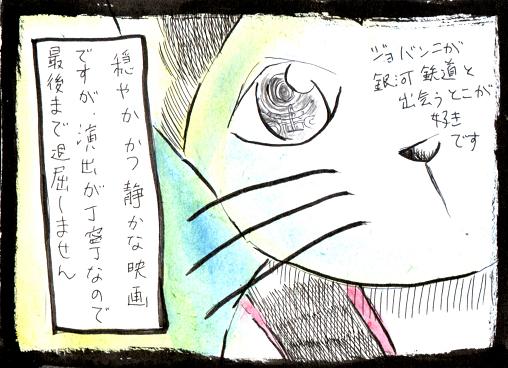 ジョバンニが
銀河鉄道と
出会うとこが
好き
です
穏やかかつ静かな映画
ですが、演出が丁寧なので
最後まで退屈しません